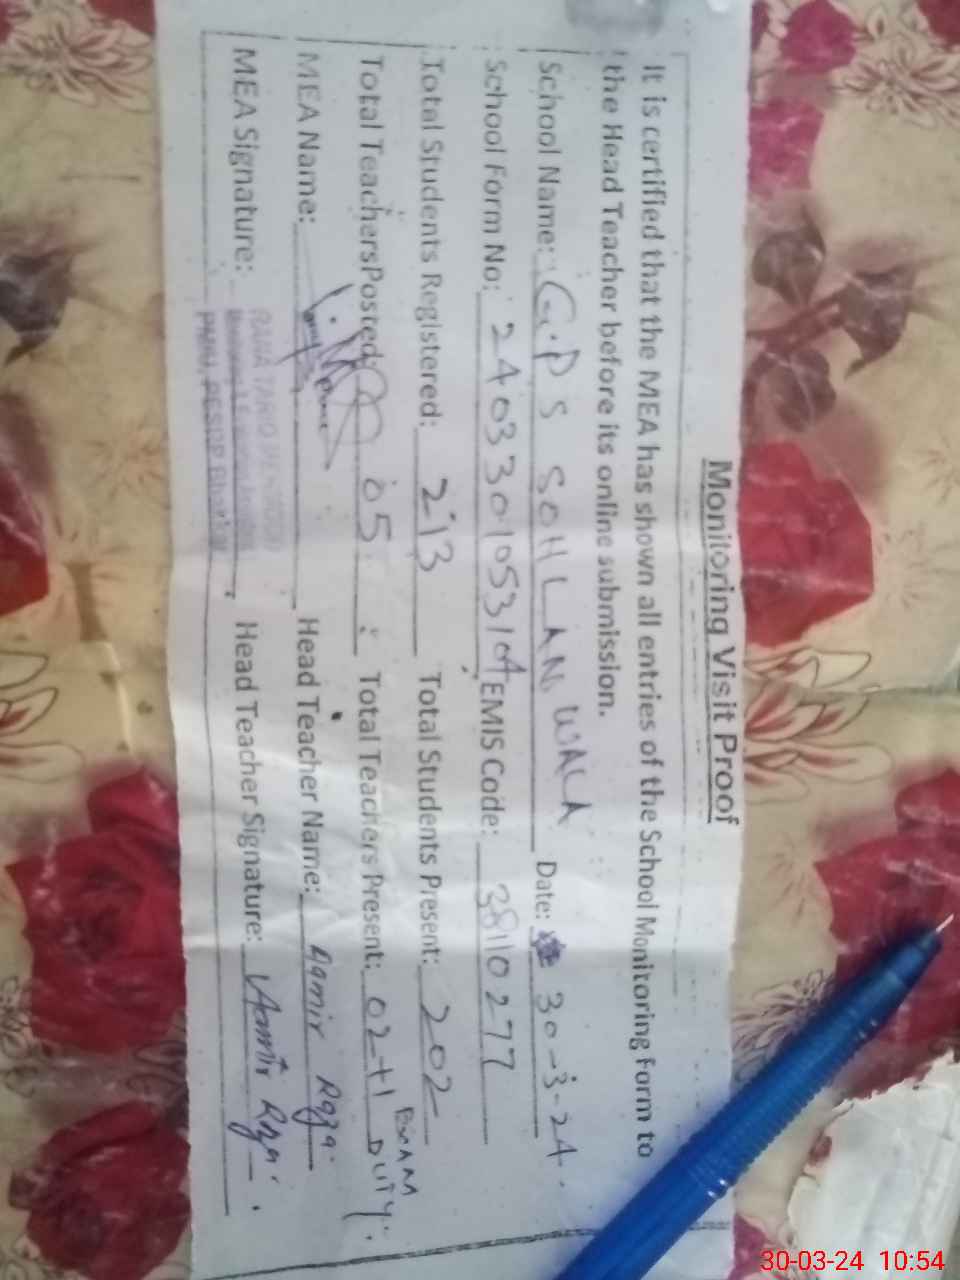 Monitoring Visit Proof
It is certified that the MEA has shown all entries of the School Monitoring Form to
the Head Teacher before its online submission.
School Name: G.P S SOHLAN WALA Date: 30-3-24.
School Form No: 2403301053104 EMIS Code: 38110277
Total Students Registered: 213 Total Students Present: 202
Total Teachers Posted: 05 Total Teachers Present: 02+1 EXAM DUTY.
MEA Name: Head Teacher Name: Aamir Raza
MEA Signature: Head Teacher Signature: Aamir Raza
RANA TARIQ
PMIU, PESRP Bhakkar
30-03-24 10:54